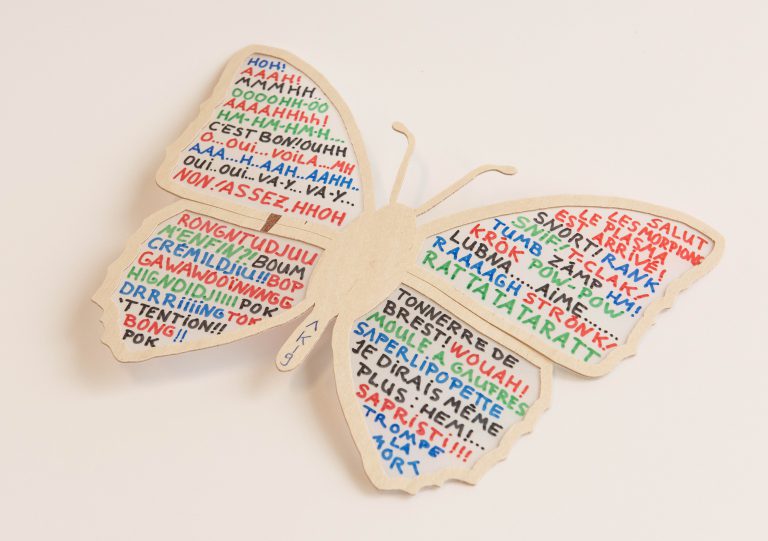 HOH!
AAAH!
MMMHH..
OOOHH-OO
AAAAHHhh!
HM-HM-HM-H...
C'EST BON!OUHH
O...OUI...VOILA...MH
AAA...H.AAH..AAHH..
OUI..OUI...VA-Y...VA-Y...
NON!ASSEZ,HHOH
RONGNTUDJUU
M'ENFIN?! BOUM
CRÉMILDJIU!!BOP
GAWAWOOÏNNNGG
HIGNDIDJIIII POK
DRRRiiiiNG TOK
'TTENTION!!
BONG!!
POK
SALUT
LES MORPIONS
LE PLASMA
EST ARRIVÉ!
SNORT! RANK
SNIF. T-CLAK!
TUMB ZAMP HM!
KRÖK POW-POW
LUBNA.... AIME......
RAAAAGH STRÖNK!
RATTATATARATT
TONNERRE DE
BREST! WOUAH!
MOULE A GAUFRES
SAPERLIPOPETTE
JE DIRAIS MÊME
PLUS : HEM!...
SAPRiSTi!!!!
TROMPE
LA
MORT